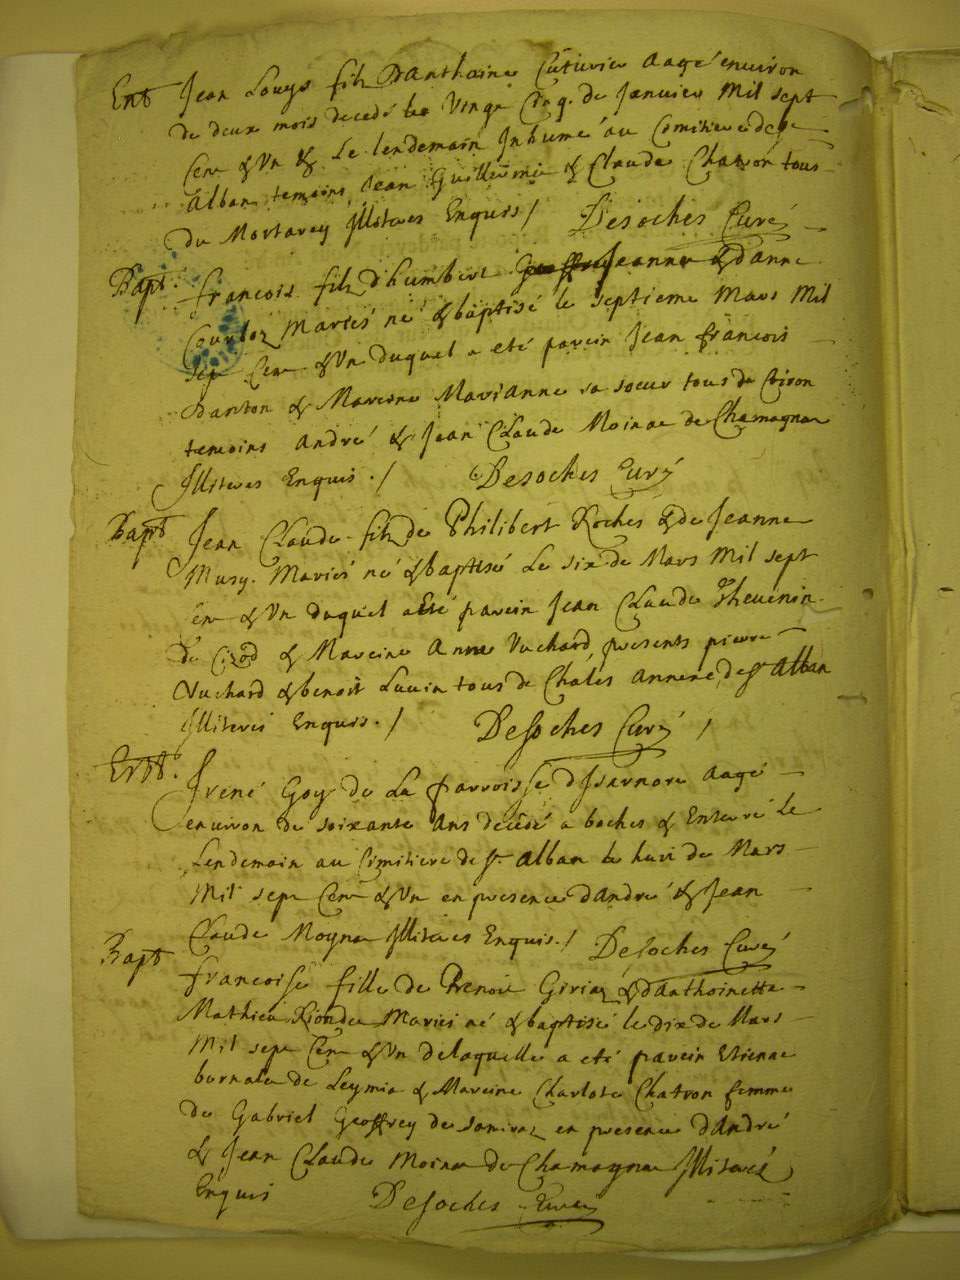 Ent Jean Louys filz Danthoine Cuturier aagé environ
de deux mois decedé le Vingt Cinq de Janvier Mil sept
Cent & Un & Le lendemain Inhumé au Cimitiere de St
Alban temoins Jean Guillermin & Claude Chatron tous
du Mortarey Illiteres Enquis / Desoches Curé
Bapt. francois filz Dhumbert Jeanne & danne
Courtoz Mariés né & baptisé le septieme Mars Mil
sept Cent & Un duquel a eté parein Jean francois
Danton & Mareine Marianne sa soeur tous de Coiron
temoins André & Jean Claude Moinae de Chamagnae
Illiteres Enquis . / Desoches Curé
Bapt Jean Claude filz de Philibert Roches & de Jeanne
Musy . Mariés né & baptisé Le six de Mars Mil sept
Cent & Un duquel a Eté parein Jean Claude Thevenin
de Cizod & Mareine Anne Vuchard, presents pierre
Vuchard & benoit Luvin tous de Chales annexe de St Alban
Illiterés Enquis . / Desoches Curé /
Ent. Irené Goy de La parroisse d Isarnore aagé
environ de soixante ans decedé a boches & Enterré Le
Lendemain au Cimitiere de St Alban le huit de Mars
Mil sept Cent & Un en presence d André & Jean
Claude Moynae Illiteres Enquis . / Desoches Curé
Bapt francoise fille de Benoit Giriaz & danthoinette
Mathieu Mariés né & baptisé le dix de Mars
Mil sept Cent & Un de laquelle a eté parein Etienne
de Leymia & Mareine Charlote Chatron femme
de Gabriel Geoffrey de en presence d André
& Jean Claude Moinae de Chamagnae Illiterés
Enquis Desoches Curé